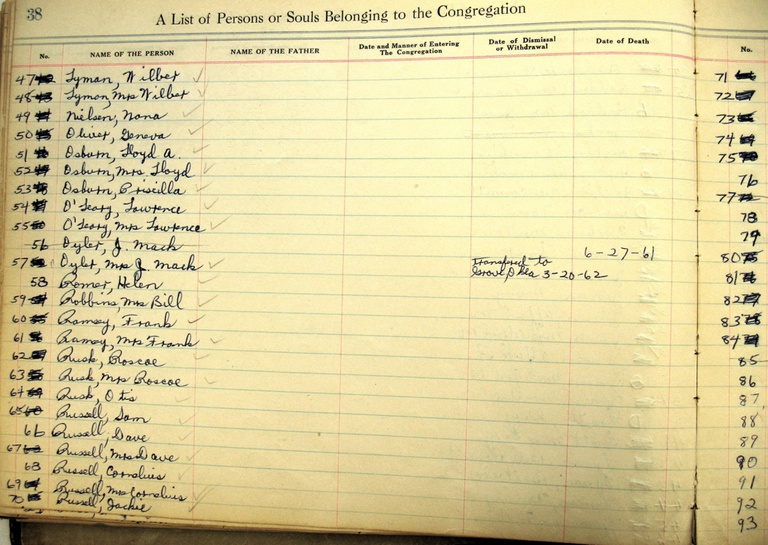 38
A List of Persons or Souls Belonging to the Congregation
No. NAME OF THE PERSON NAME OF THE FATHER Date and Manner of Entering The Congregation Date of Dismissal or Withdrawal Date of Death No.
47 Lyman, Wilber 71
48 Lyman, Mrs Wilber 72
49 Nielsen, Nona 73
50 Oliver, Geneva 74
51 Osburn, Floyd A. 75
52 Osburn, Mrs. Floyd 76
53 Osburn, Priscilla 77
54 O'Leary, Lawrence 78
55 O'Leary, Mrs Lawrence 79
56 Oyler, J. Mack 6-27-61 80
57 Oyler, Mrs J. Mack Transfered to Grove Okla 3-20-62 81
58 Romer, Helen 82
59 Robbins, Mrs Bill 83
60 Ramsey, Frank 84
61 Ramsey, Mrs Frank 85
62 Rusk, Roscoe 86
63 Rusk, Mrs Roscoe 87
64 Rusk, Otis 88
65 Russell, Sam 89
66 Russell, Dave 90
67 Russell, Mrs Dave 91
68 Russell, Cornelius 92
69 Russell, Mrs Cornelius 93
70 Russell, Jackie